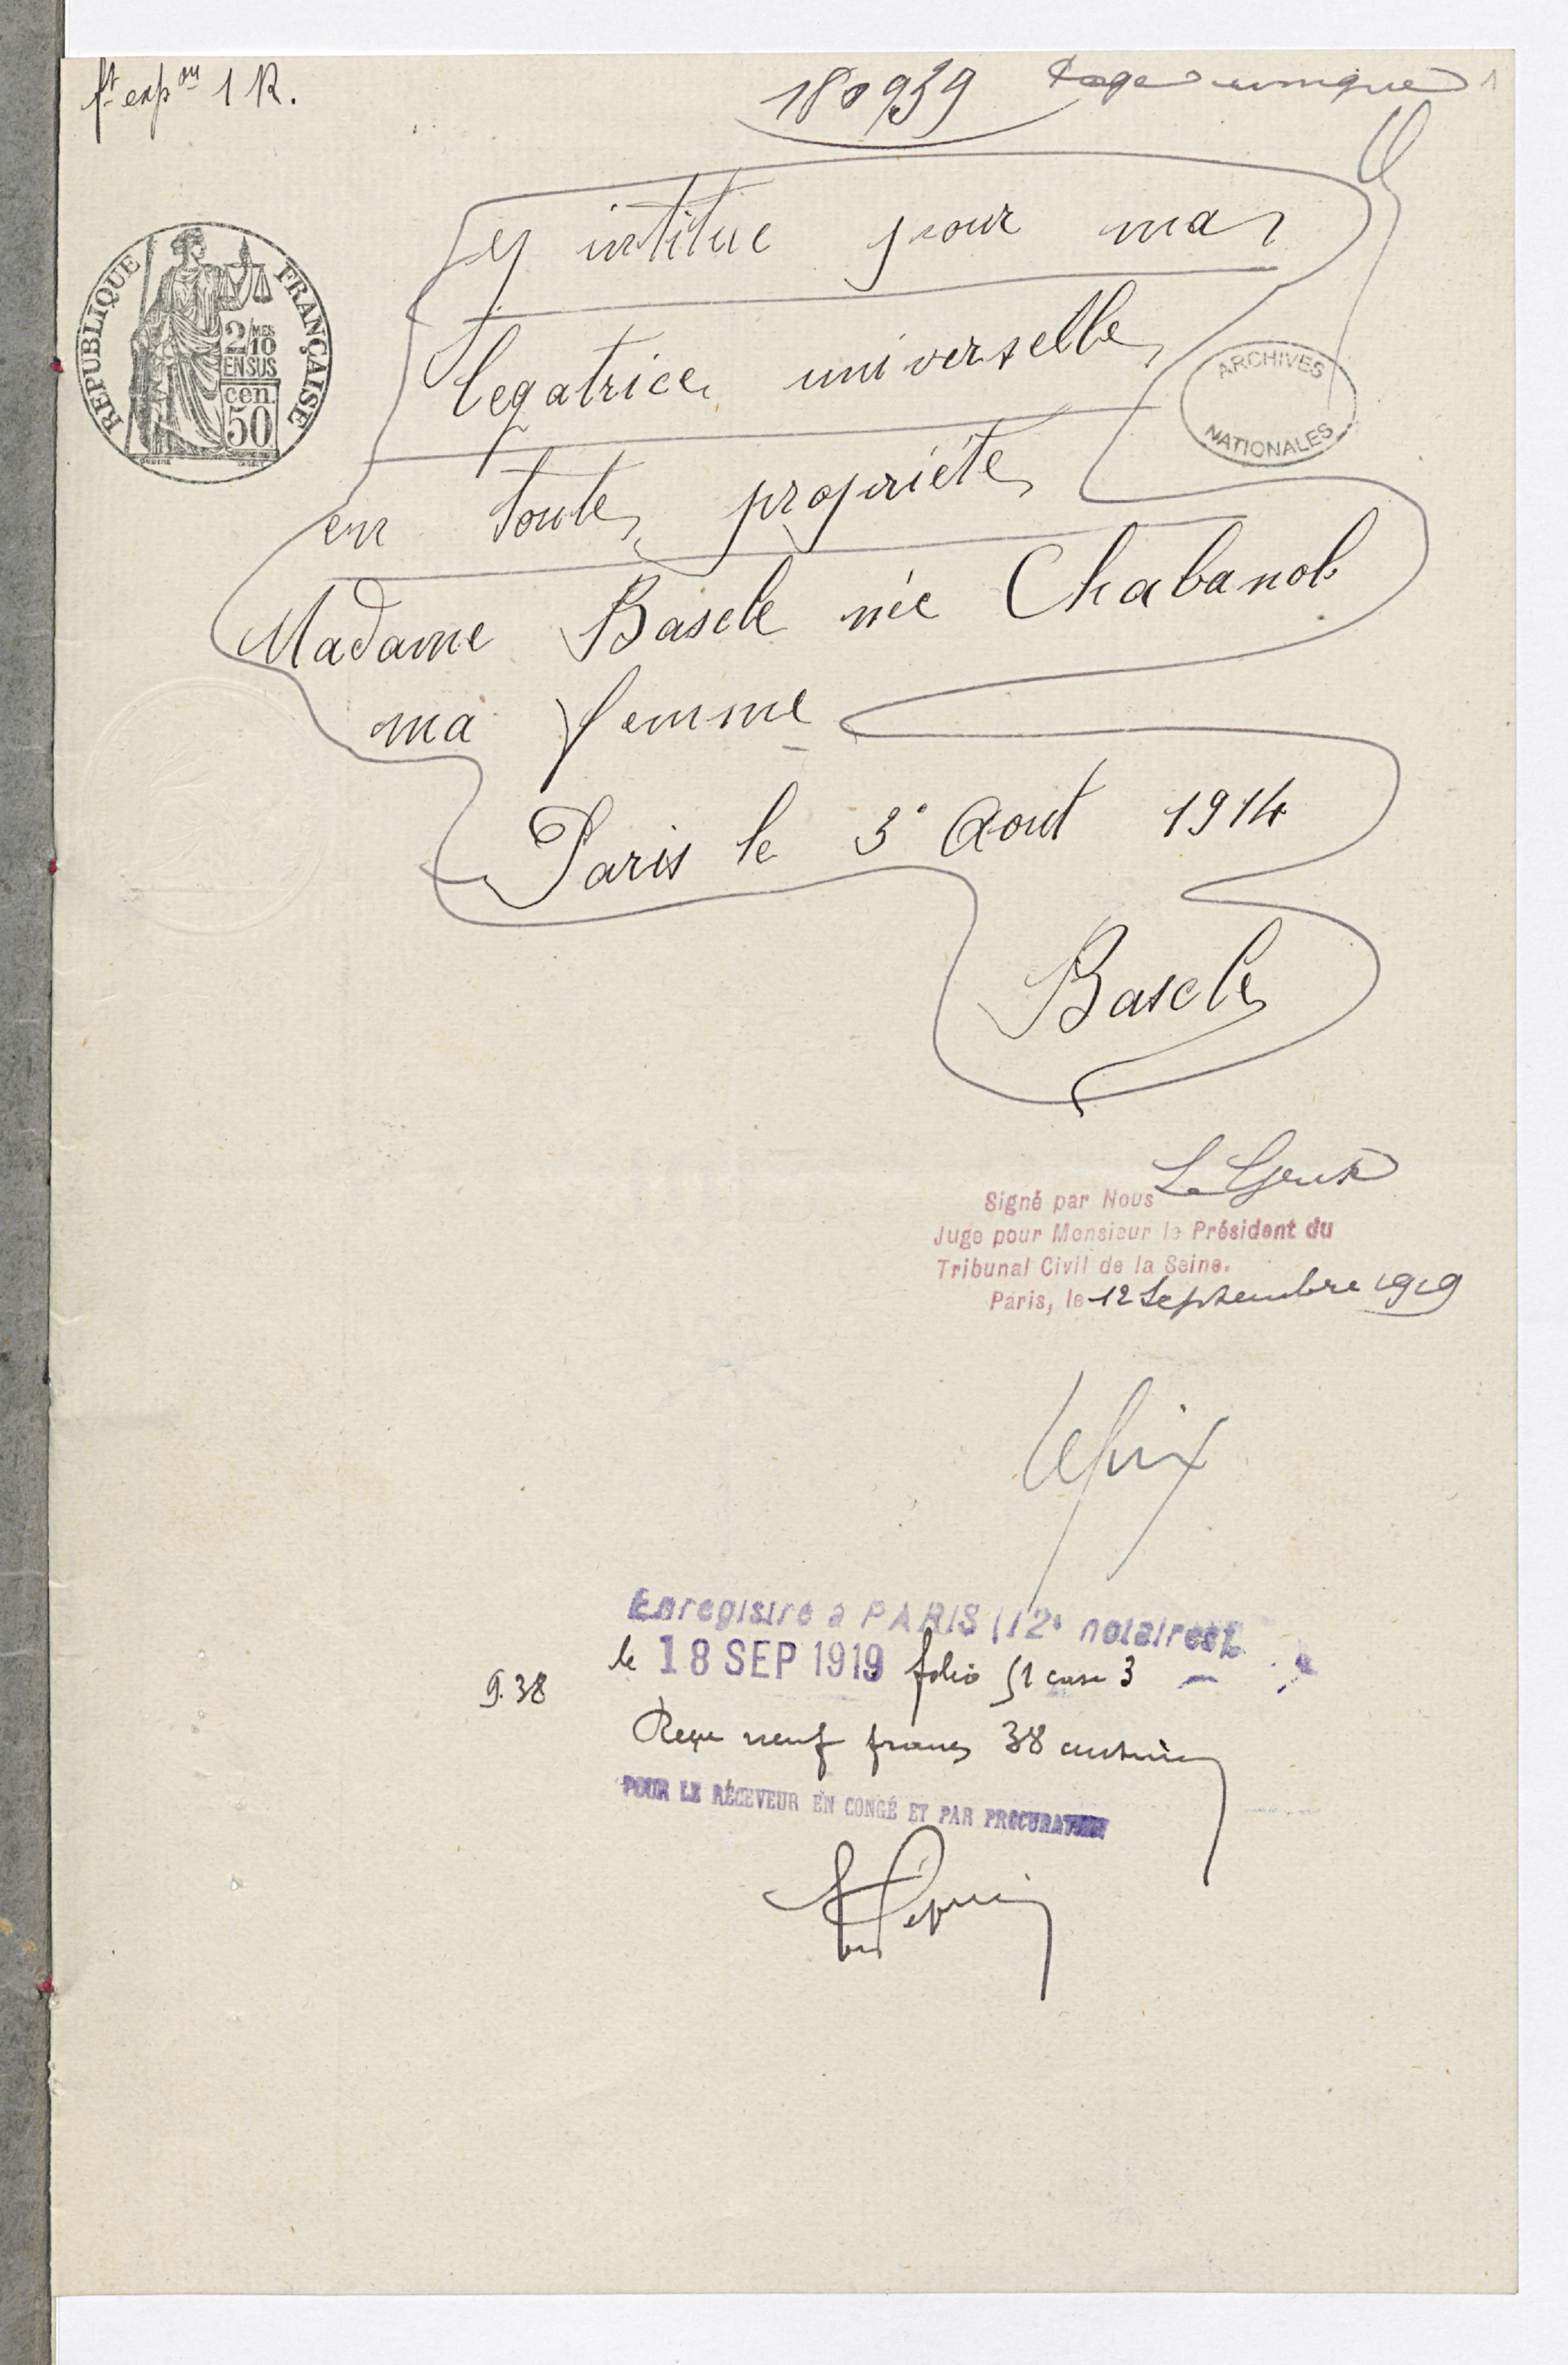 ft expon 1 R.
180939
Page unique 1
REPUBLIQUE FRANÇAISE
2/10 MES
EN SUS
50 cen.
ARCHIVES
NATIONALES
y intitue pour ma
legatrice universelle
en toute propriéte
Madame Bascle née Chabanol
ma femme
Paris le 3e Aout 1914
Bascle
Signé par Nous
Juge pour Monsieur le Président du
Tribunal Civil de la Seine.
Paris, le 12 Septembre 1919
Enregistré à PARIS (12e notaires)
le 18 SEP 1919 folio 51 case 3
9.38
Reçu neuf francs 38 centimes
POUR LE RECEVEUR EN CONGÉ ET PAR PROCURATION